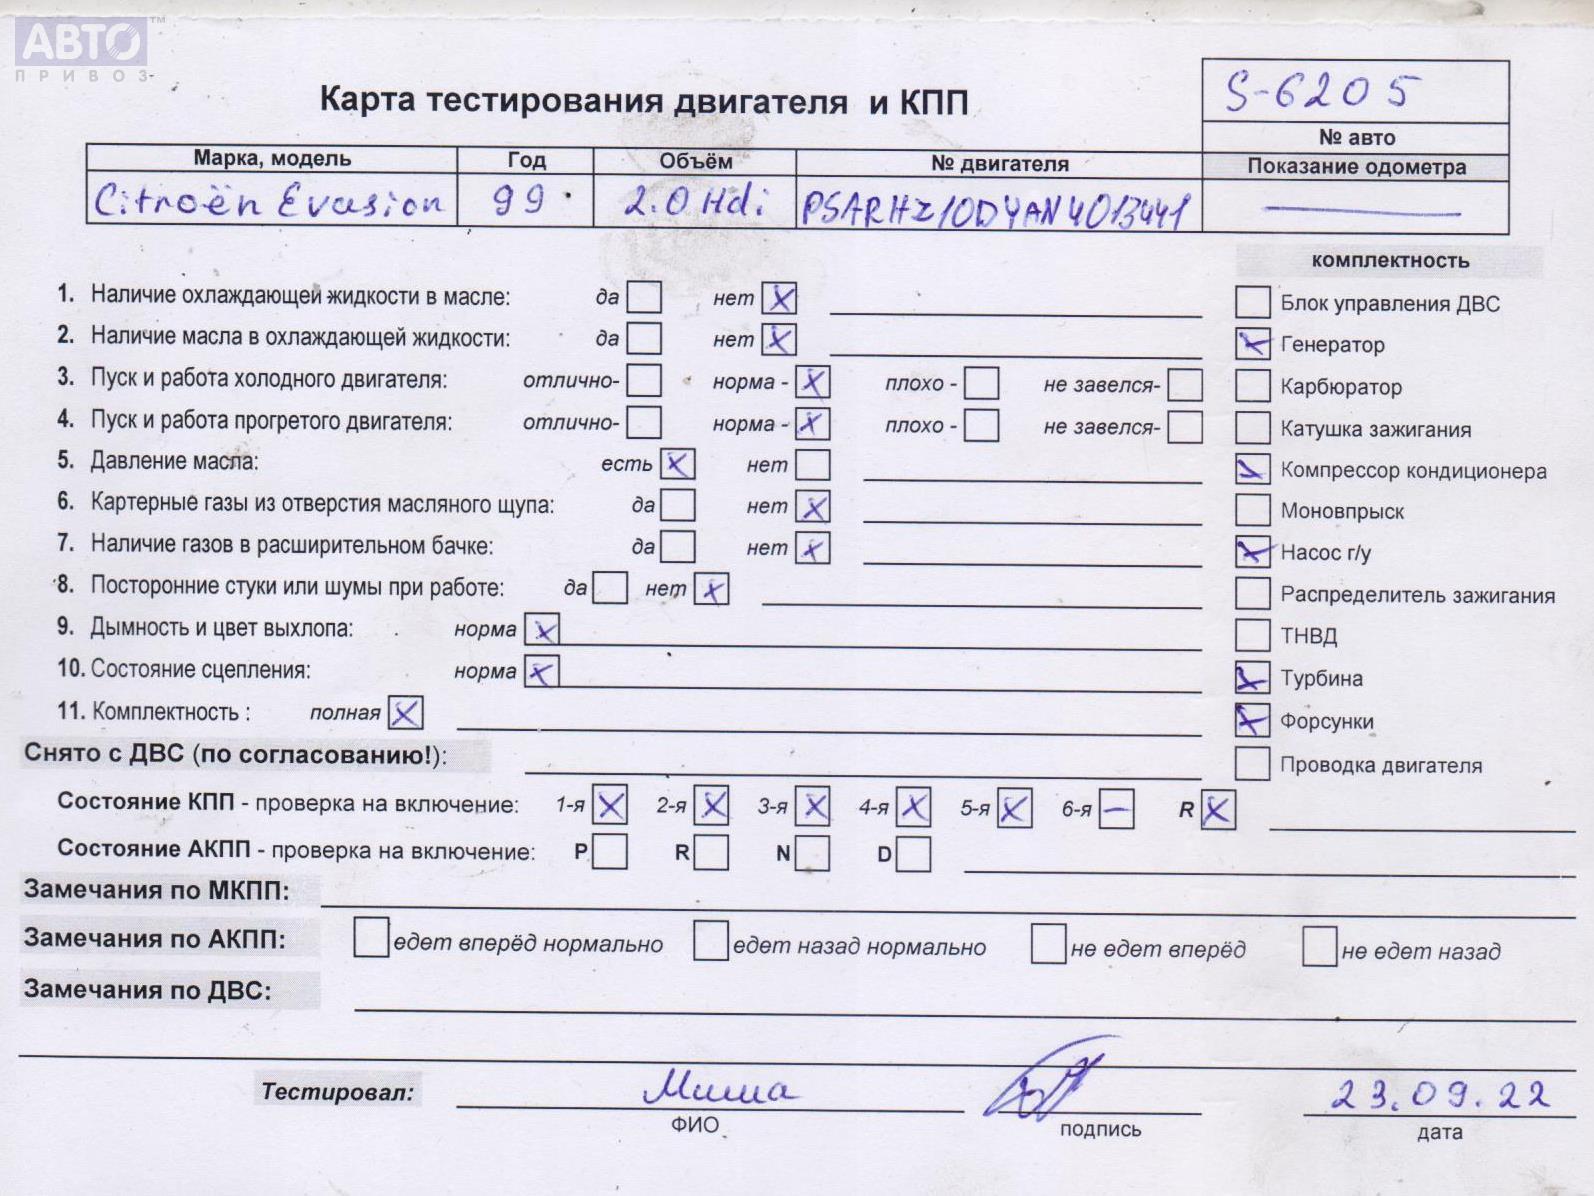 АВТО™
ПРИВОЗ
Карта тестирования двигателя и КПП
S-6205
№ авто
Марка, модель Год Объём № двигателя Показание одометра
Citroën Evasion 99 2.0 Hdi PSARHZ10DYAN4013441 —
комплектность
1. Наличие охлаждающей жидкости в масле: да нет X
Блок управления ДВС
2. Наличие масла в охлаждающей жидкости: да нет X
X Генератор
3. Пуск и работа холодного двигателя: отлично- норма - X плохо - не завелся-
Карбюратор
4. Пуск и работа прогретого двигателя: отлично- норма - X плохо - не завелся-
Катушка зажигания
5. Давление масла: есть X нет
X Компрессор кондиционера
6. Картерные газы из отверстия масляного щупа: да нет X
Моновпрыск
7. Наличие газов в расширительном бачке: да нет X
X Насос г/у
8. Посторонние стуки или шумы при работе: да нет X
Распределитель зажигания
9. Дымность и цвет выхлопа: норма X
ТНВД
10. Состояние сцепления: норма X
X Турбина
11. Комплектность : полная X
X Форсунки
Снято с ДВС (по согласованию!):
Проводка двигателя
Состояние КПП - проверка на включение: 1-я X 2-я X 3-я X 4-я X 5-я X 6-я — R X
Состояние АКПП - проверка на включение: P R N D
Замечания по МКПП:
Замечания по АКПП: едет вперёд нормально едет назад нормально не едет вперёд не едет назад
Замечания по ДВС:
Тестировал: Миша 23.09.22
ФИО подпись дата